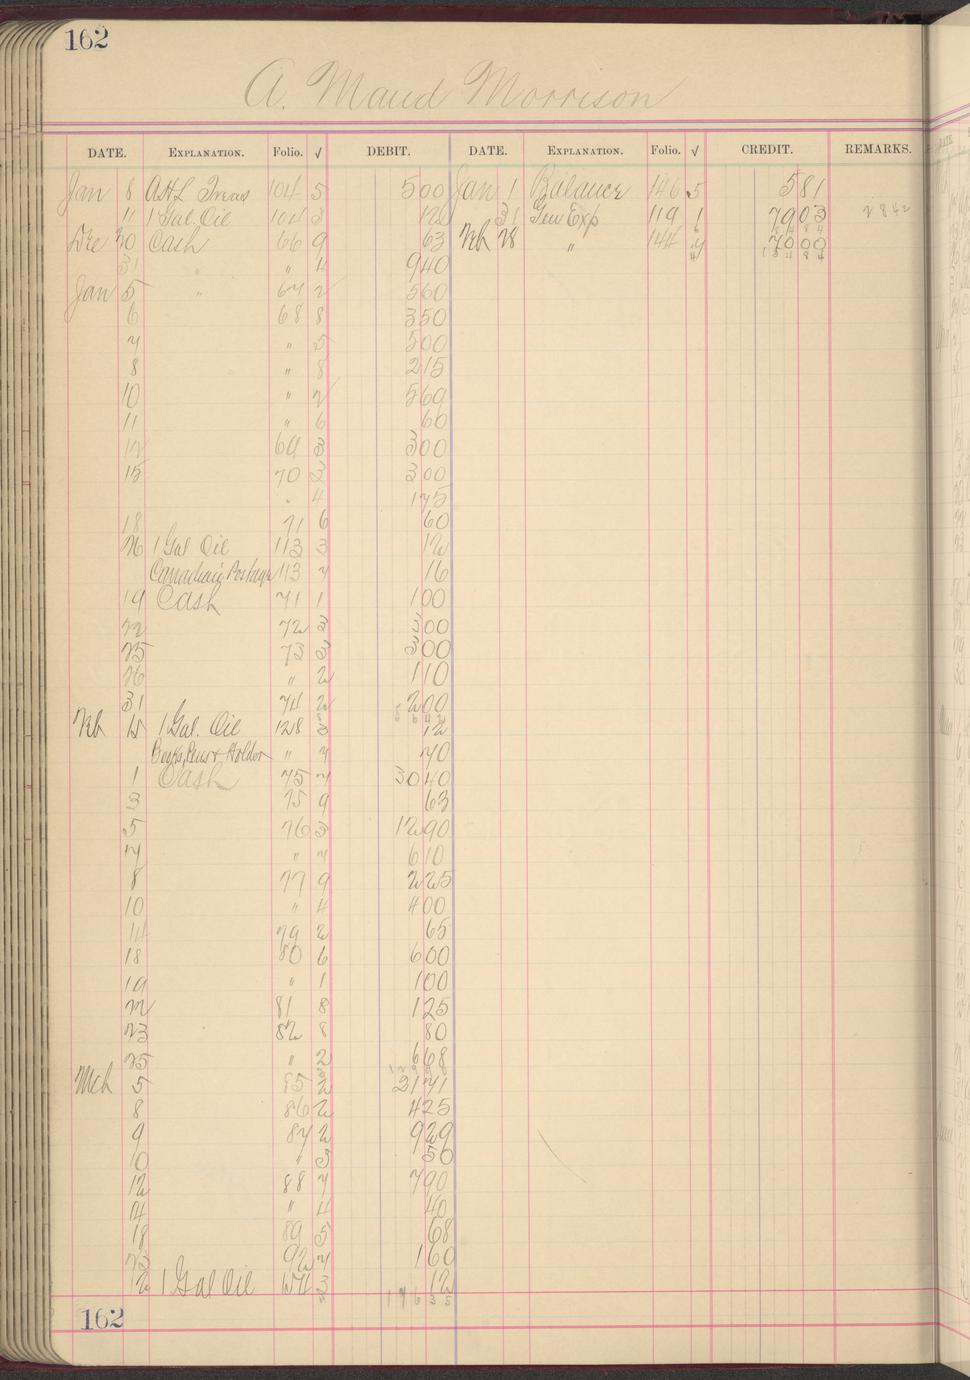 162
A. Maud Morrison
DATE. EXPLANATION. Folio. √ DEBIT. DATE. EXPLANATION. Folio. √ CREDIT. REMARKS.
Jan 8 A.H.L. Treas 104 5 500 Jan 1 Balance 146 5 581
11 1 Gal. Oil 104 3 12 31 Gen Exp 119 1 7903
Dec 30 Cash 66 9 63 Feb 28 " 144 7000
31 " " 4 940
Jan 5 " 67 2 560
6 68 8 350
7 " 5 500
8 " 8 215
10 " 2 569
11 " 6 60
12 69 3 300
15 70 3 300
" 4 175
18 71 6 60
26 1 Gal Oil 113 3 12
Canadian Postage 113 7 16
19 Cash 71 1 100
22 72 3 300
25 73 3 300
26 " 2 110
31 74 2 200
Feb 15 1 Gal. Oil 128 3 12
Books, Pens & Holder " 7 70
1 Cash 75 7 3040
3 75 9 63
5 76 3 1290
7 " 7 610
8 77 9 225
10 " 4 400
14 79 2 65
18 80 6 600
19 " 1 100
22 81 8 125
23 82 8 80
25 " 2 668
Mch 5 85 2 2171
8 86 2 425
9 87 2 929
10 " 3 50
12 88 7 790
14 " 4 40
18 89 5 68
23 92 7 160
12 1 Gal Oil 157 3 12
17635
162